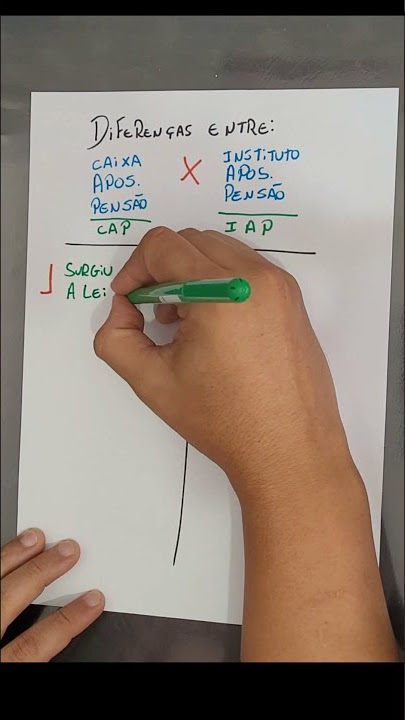 DIFERENÇAS ENTRE:
CAIXA
APOS.
PENSÃO
CAP
X
INSTITUTO
APOS.
PENSÃO
IAP
SURGIU
A LEI